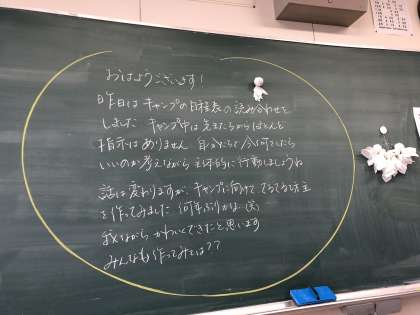 おはようございます!
昨日はキャンプの日程表の読み合わせを
しました キャンプ中は先生たちからほとんど
指示はありません 自分たちで今何をしたら
いいのか考えながら主体的に行動しましょうね
話は変わりますが、キャンプに向けててるてる坊主
を作ってみました 何年ぶりかな(笑)
我ながらかわいくできたと思います
みんなも作ってみては??